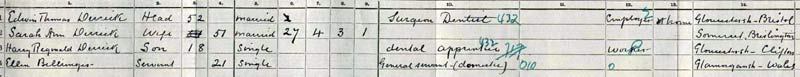 Edwin Thomas Derrick Head 52 married Surgeon Dentist 432 Employer at home Gloucestersh - Bristol
Sarah Ann Derrick Wife 51 married 27 4 3 1 Somerset, Brislington
Harry Reginald Derrick Son 18 Single dental apprentice 432 worker Gloucestersh - Clifton
Ellen Bellinger Servant 21 Single General servant (domestic) 010 0 Glamorgansh - Wales